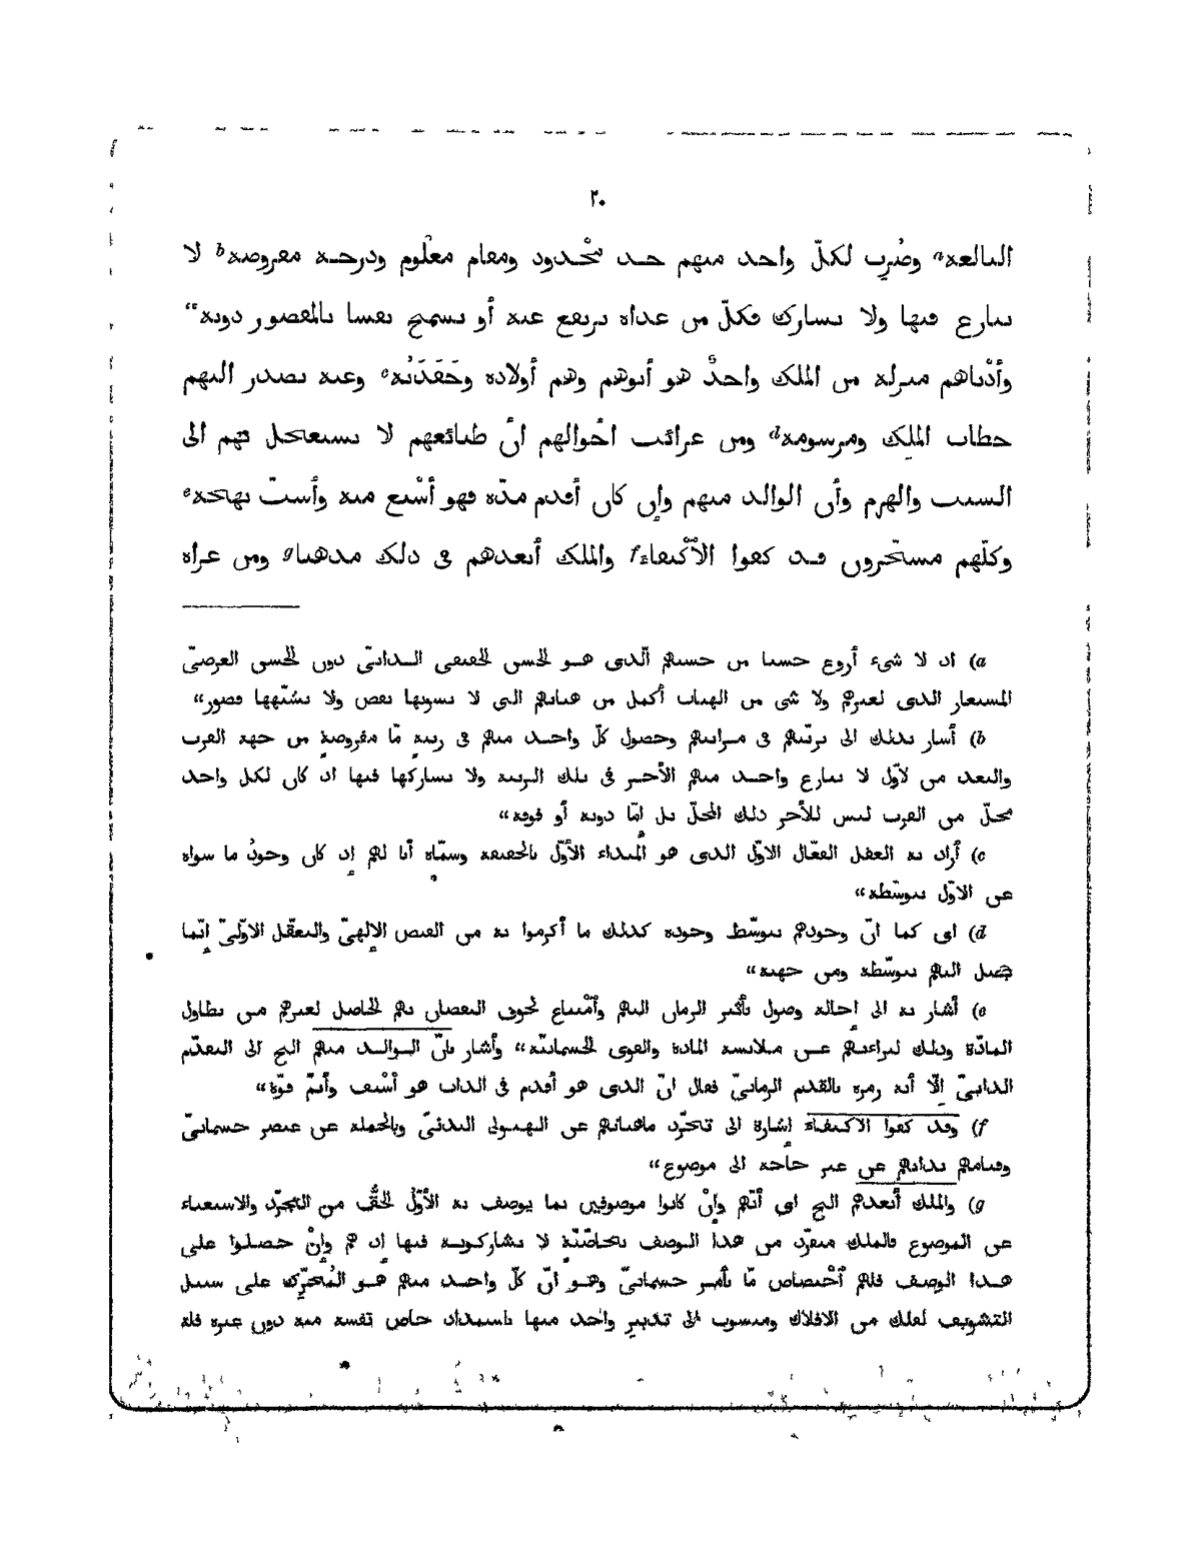 ٢٠
البالغة a وضُرِب لكلّ واحد منهم حد محْدود ومقام معْلوم ودرجة مفروضة b لا
ينازع فيها ولا يشارك فكلّ من عداه يرتفع عنه أو يسمح نفسا بالقصور دونه“
وأدْناهم منزلة من الملك واحدٌ هو أبوهم وهم أولاده وحَفَدَتُه c وعنه يصدر اليهم
خطاب الملك ومرسومه d ومن غرائب احْوالهم انّ طبائعهم لا تستعجل بهم الى
الشيب والهرم وأن الوالد منهم وإن كان أقدم مدّة فهو أسْبغ منه وأشبّ بهجة e
وكلّهم مسحّرون قد كفوا الاكتفاء f والملك أبعدهم فى ذلك مذهبا g ومن عزاه
a) ان لا شىء أروع حسنا من حسنهم الّذى هو الحسن الحقيقى الذاتىّ دون الحسن العرضىّ
المستعار الذى لغيرهم ولا شى من الهيات أكمل من هياتهم التى لا يشوبها نقص ولا يشنّها قصور“
b) أشار بذلك الى ترتّبهم فى مراتبهم وحصول كلّ واحد منهم فى رتبة مّا مفروضة من جهة القرب
والبعد من لاوّل لا ينازع واحد منهم الأخر فى تلك الرتبة ولا يشاركها فيها اذ كان لكل واحد
محلّ من القرب ليس للأخر ذلك المحلّ بل امّا دونه أو فوقه“
c) أراد به العقل الفعّال الاوّل الذى هو المبداء الأوّل بالحقيقة وسمّاه أبا لهم إذ كان وجودُ ما سواه
عن الاوّل بتوسّطه“
d) اى كما انّ وجودهم بتوسّط وجوده كذلك ما أكرموا به من الفيض الإلهىّ والتعقّل الاوّلىّ إنّما
يحصل اليهم بتوسّطه ومن جهته“
e) أشار به الى إحالة وصول تأثير الزمان اليهم وأمْتناع لحوق النقصان بهم الحاصل لغيرهم من تطاول
المادّة وذلك لبراءتهم عن ملابسة المادة والقوى الجسمانيّة“ وأشار بأنّ الوالد منهم الخ الى التقدّم
الذاتىّ إلّا أنه رمزه بالقدم الزمانىّ فقال انّ الذى هو أقدم فى الذات هو أشْبف وأتمّ قوّة“
f) وقد كفوا الاكتفاء إشارة الى تجرّد ماهياتهم عن الهيولى البدنىّ وبالجملة عن عنصر جسمانىّ
وقيامهم بذاتهم عن غير حاجة الى موضوع“
g) والملك أبعدهم الخ اى أنّهم وإنْ كانوا موصوفين بما يوصف به الأوّلُ الحقُّ من التجرّد والاستغناء
عن الموضوع فالملك متفرّد من هذا الوصف بخاصّيّة لا يشاركونه فيها إذ هم وإنْ حصلوا على
هذا الوصف فلهم اخْتصاص مّا بأمر جسمانىّ وهو انّ كلّ واحد منهم هو المُحرّك على سبيل
التشويف لفلك من الافلاك ومنسوب الى تدبير واحد منها باستمداد خاص تفسه منه دون غيره فله